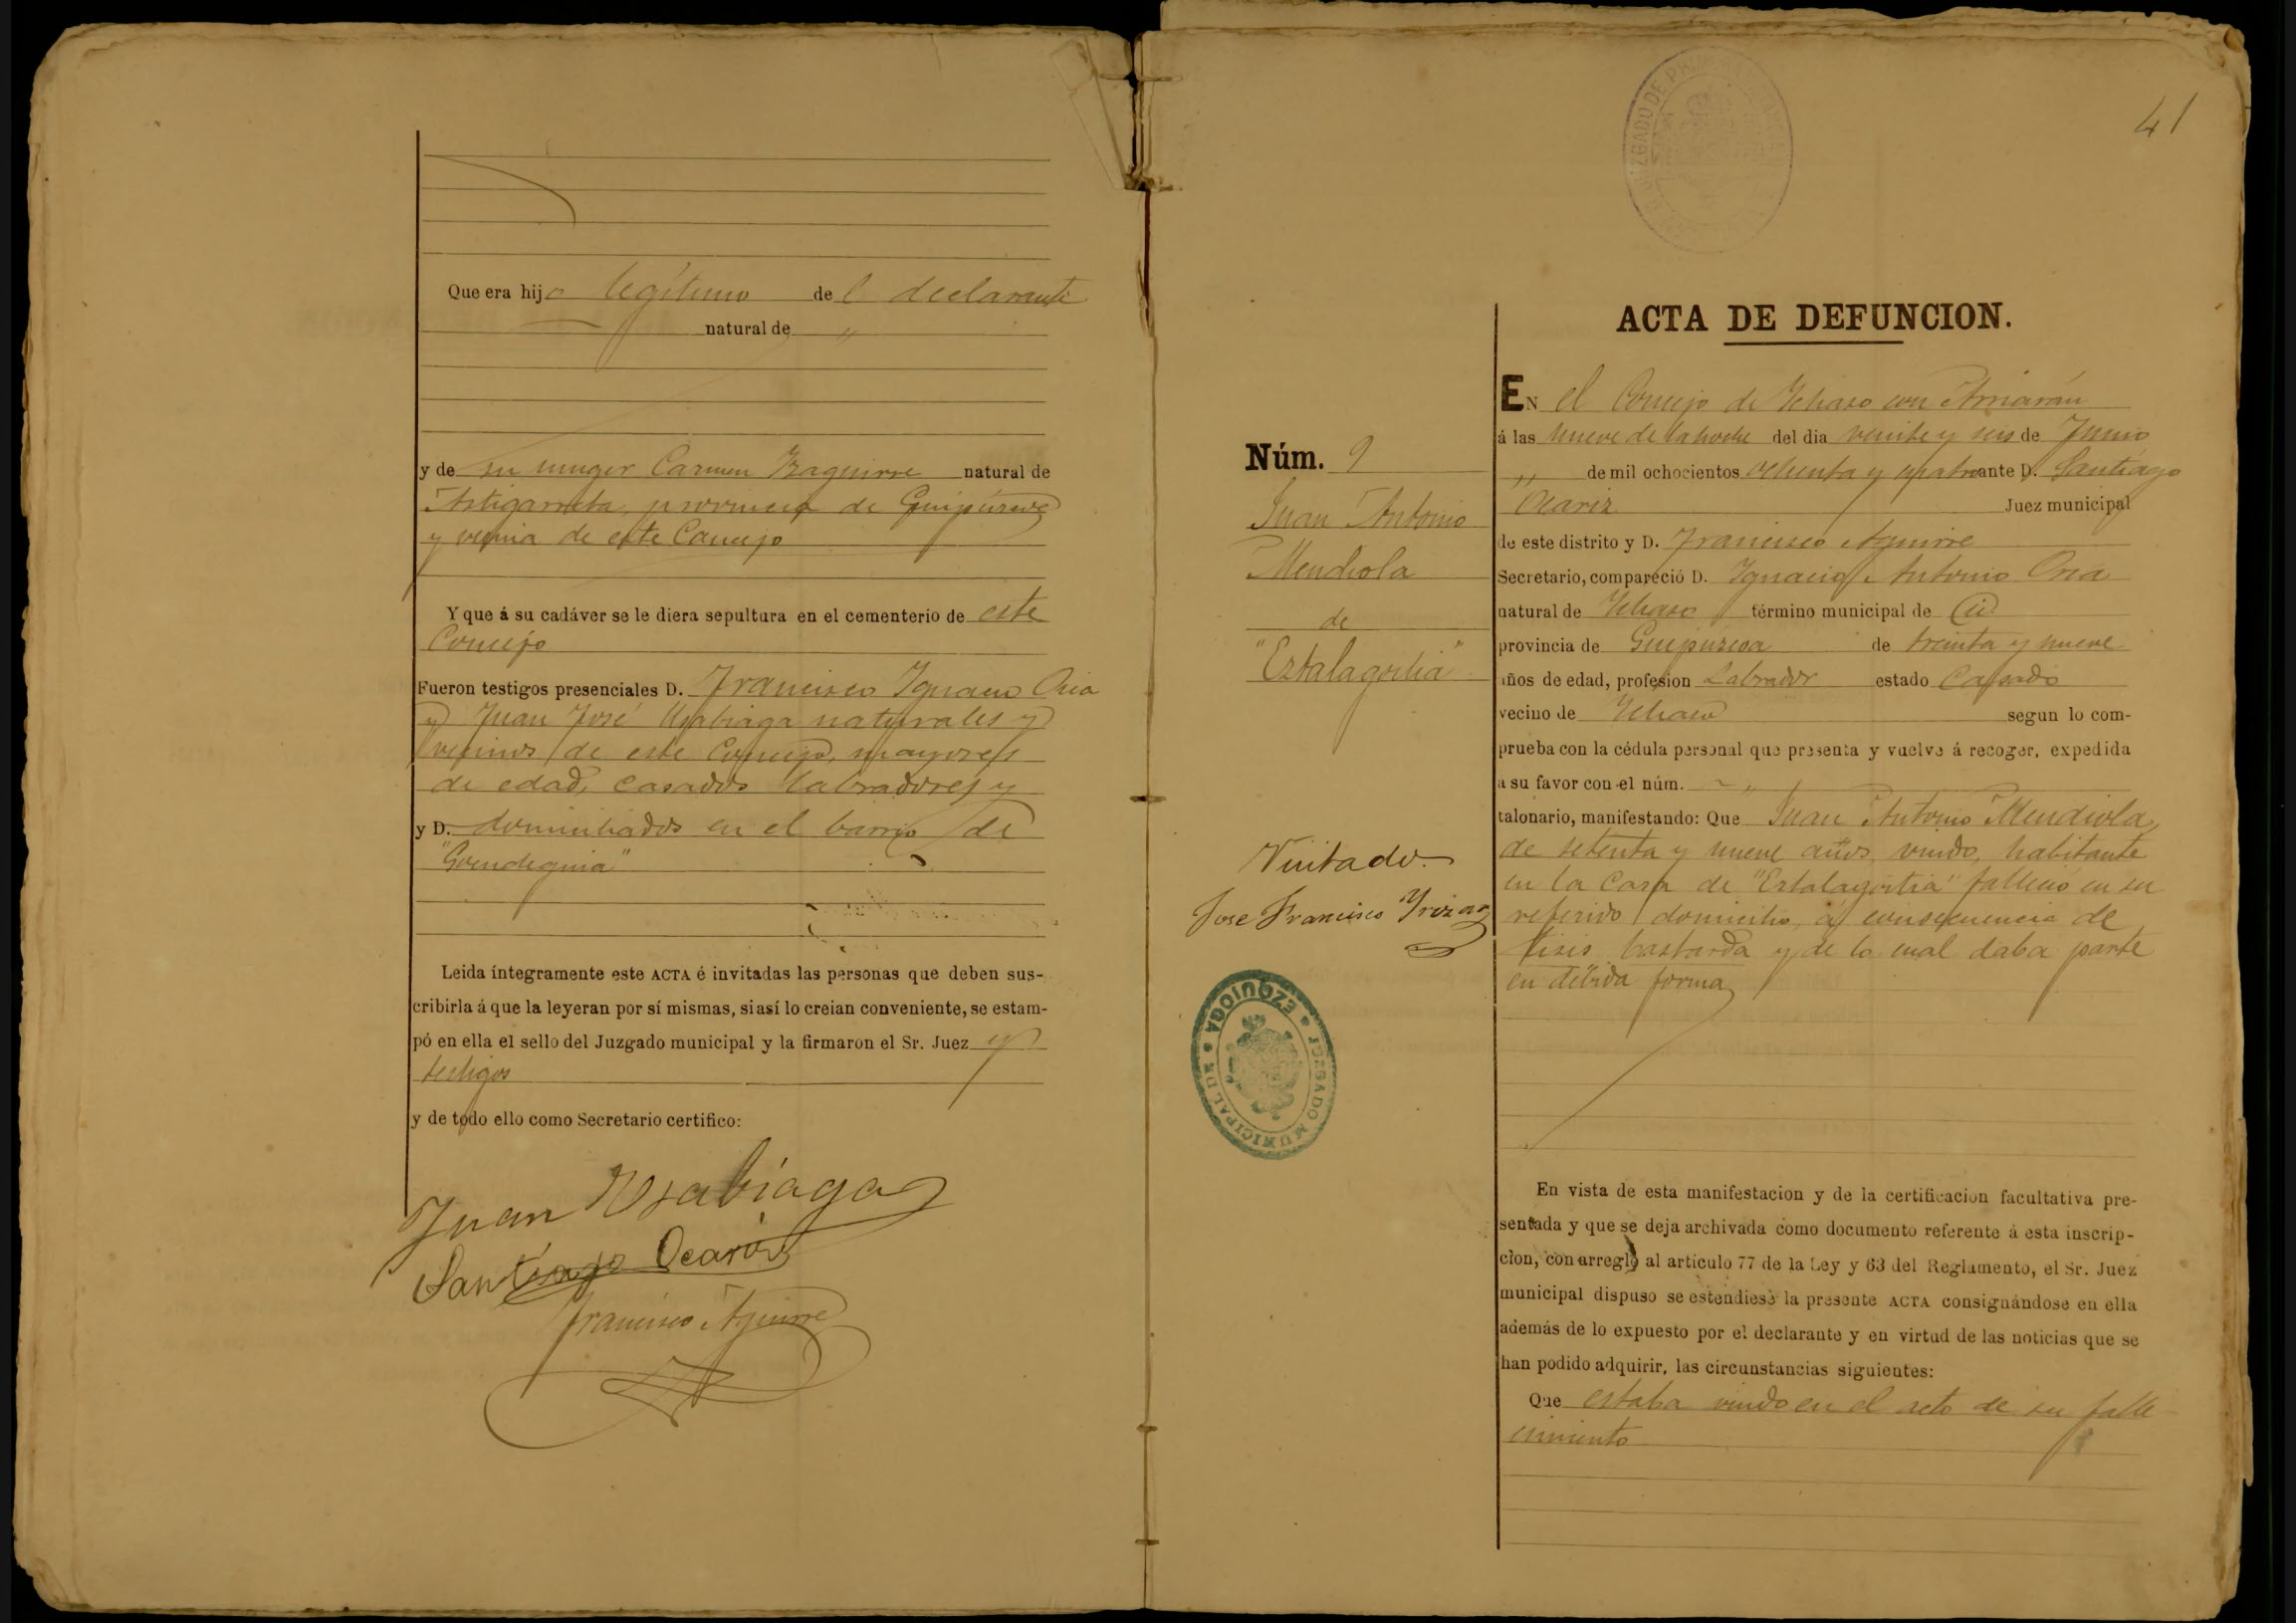 Que era hijo legítimo del declarante
natural de "
y de su muger Carmen Yzaguirre natural de
Astigarreta, provincia de Guipúzcoa
y vecina de este Concejo
Y que á su cadáver se le diera sepultura en el cementerio de este
Concejo
Fueron testigos presenciales D. Francisco Ignacio Oria
y Juan José Usabiaga naturales y
vecinos de este Concejo, mayores
de edad, casados labradores y
y D. domiciliados en el barrio de
"Goendeguia"
Leida íntegramente este ACTA é invitadas las personas que deben sus-
cribirla á que la leyeran por sí mismas, si así lo creian conveniente, se estam-
pó en ella el sello del Juzgado municipal y la firmaron el Sr. Juez y
testigos
y de todo ello como Secretario certifico:
Juan Usabiaga
Santiago Ocariz
Francisco Aguirre
41
JUZGADO DE PRIMERA
Núm. 9
Juan Antonio
Mendiola
de
"Estalagortia"
Visitado
Jose Francisco Yrizar
JUZGADO MUNICIPAL DE EZQUIOGA
ACTA DE DEFUNCION.
EN el Concejo de Ychaso con Arriarán
á las nueve de la noche del dia veinte y seis de Junio
" de mil ochocientos ochenta y cuatro ante D. Santiago
Ocariz Juez municipal
de este distrito y D. Francisco Aguirre
Secretario, compareció D. Ignacio Antonio Oria
natural de Ychaso término municipal de id
provincia de Guipuzcoa de treinta y nueve
años de edad, profesion Labrador estado Casado
vecino de Ychaso segun lo com-
prueba con la cédula personal que presenta y vuelve á recoger, expedida
a su favor con el núm. "
talonario, manifestando: Que Juan Antonio Mendiola,
de setenta y nueve años, viudo, habitante
en la Casa de "Estalagortia" falleció en su
referido domicilio, á consecuencia de
tisis bastarda y de lo cual daba parte
en debida forma
En vista de esta manifestacion y de la certificacion facultativa pre-
sentada y que se deja archivada como documento referente á esta inscrip-
cion, con arreglo al artículo 77 de la Ley y 63 del Reglamento, el Sr. Juez
municipal dispuso se estendiese la presente ACTA consignándose en ella
además de lo expuesto por el declarante y en virtud de las noticias que se
han podido adquirir, las circunstancias siguientes:
Que estaba viudo en el acto de su falle
cimiento